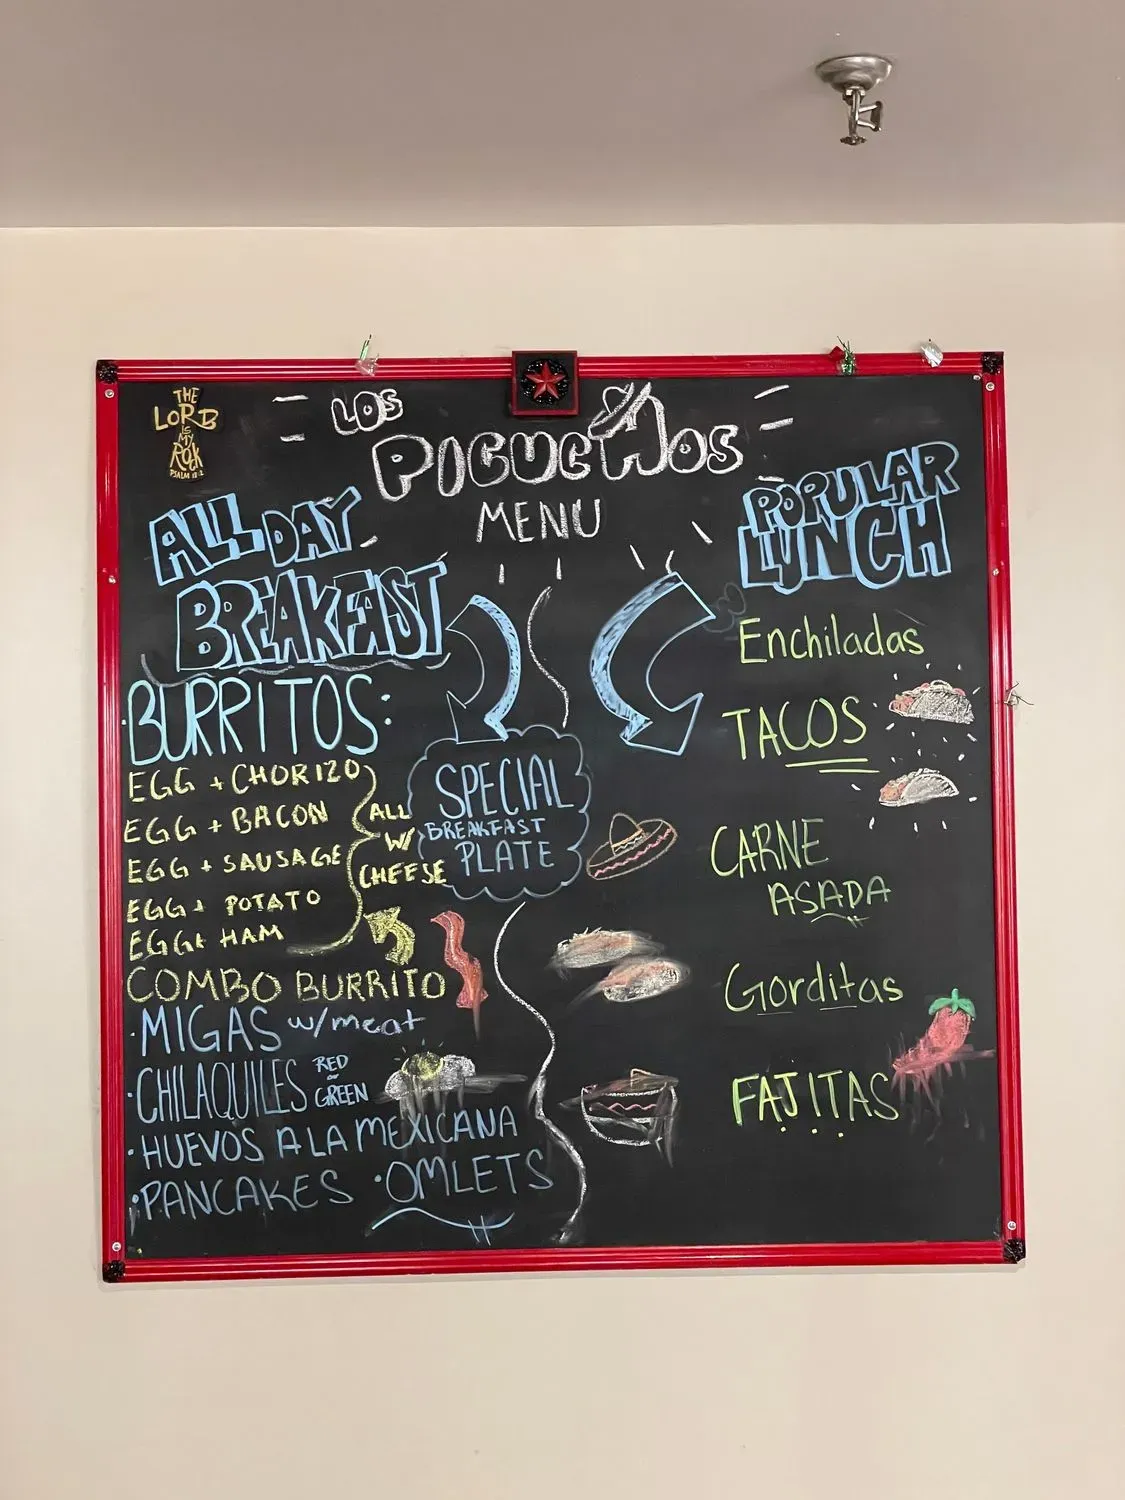 THE
LORD
IS
MY
ROCK
PSALM 18:2
LOS
PICUCHOS
MENU
ALL DAY
BREAKFAST
BURRITOS:
EGG + CHORIZO
EGG + BACON
EGG + SAUSAGE
EGG + POTATO
EGG + HAM
ALL
W/
CHEESE
COMBO BURRITO
·MIGAS w/meat
·CHILAQUILES RED
or
GREEN
·HUEVOS A LA MEXICANA
·PANCAKES ·OMLETS
SPECIAL
BREAKFAST
PLATE
POPULAR
LUNCH
Enchiladas
TACOS
CARNE
ASADA
Gorditas
FAJITAS